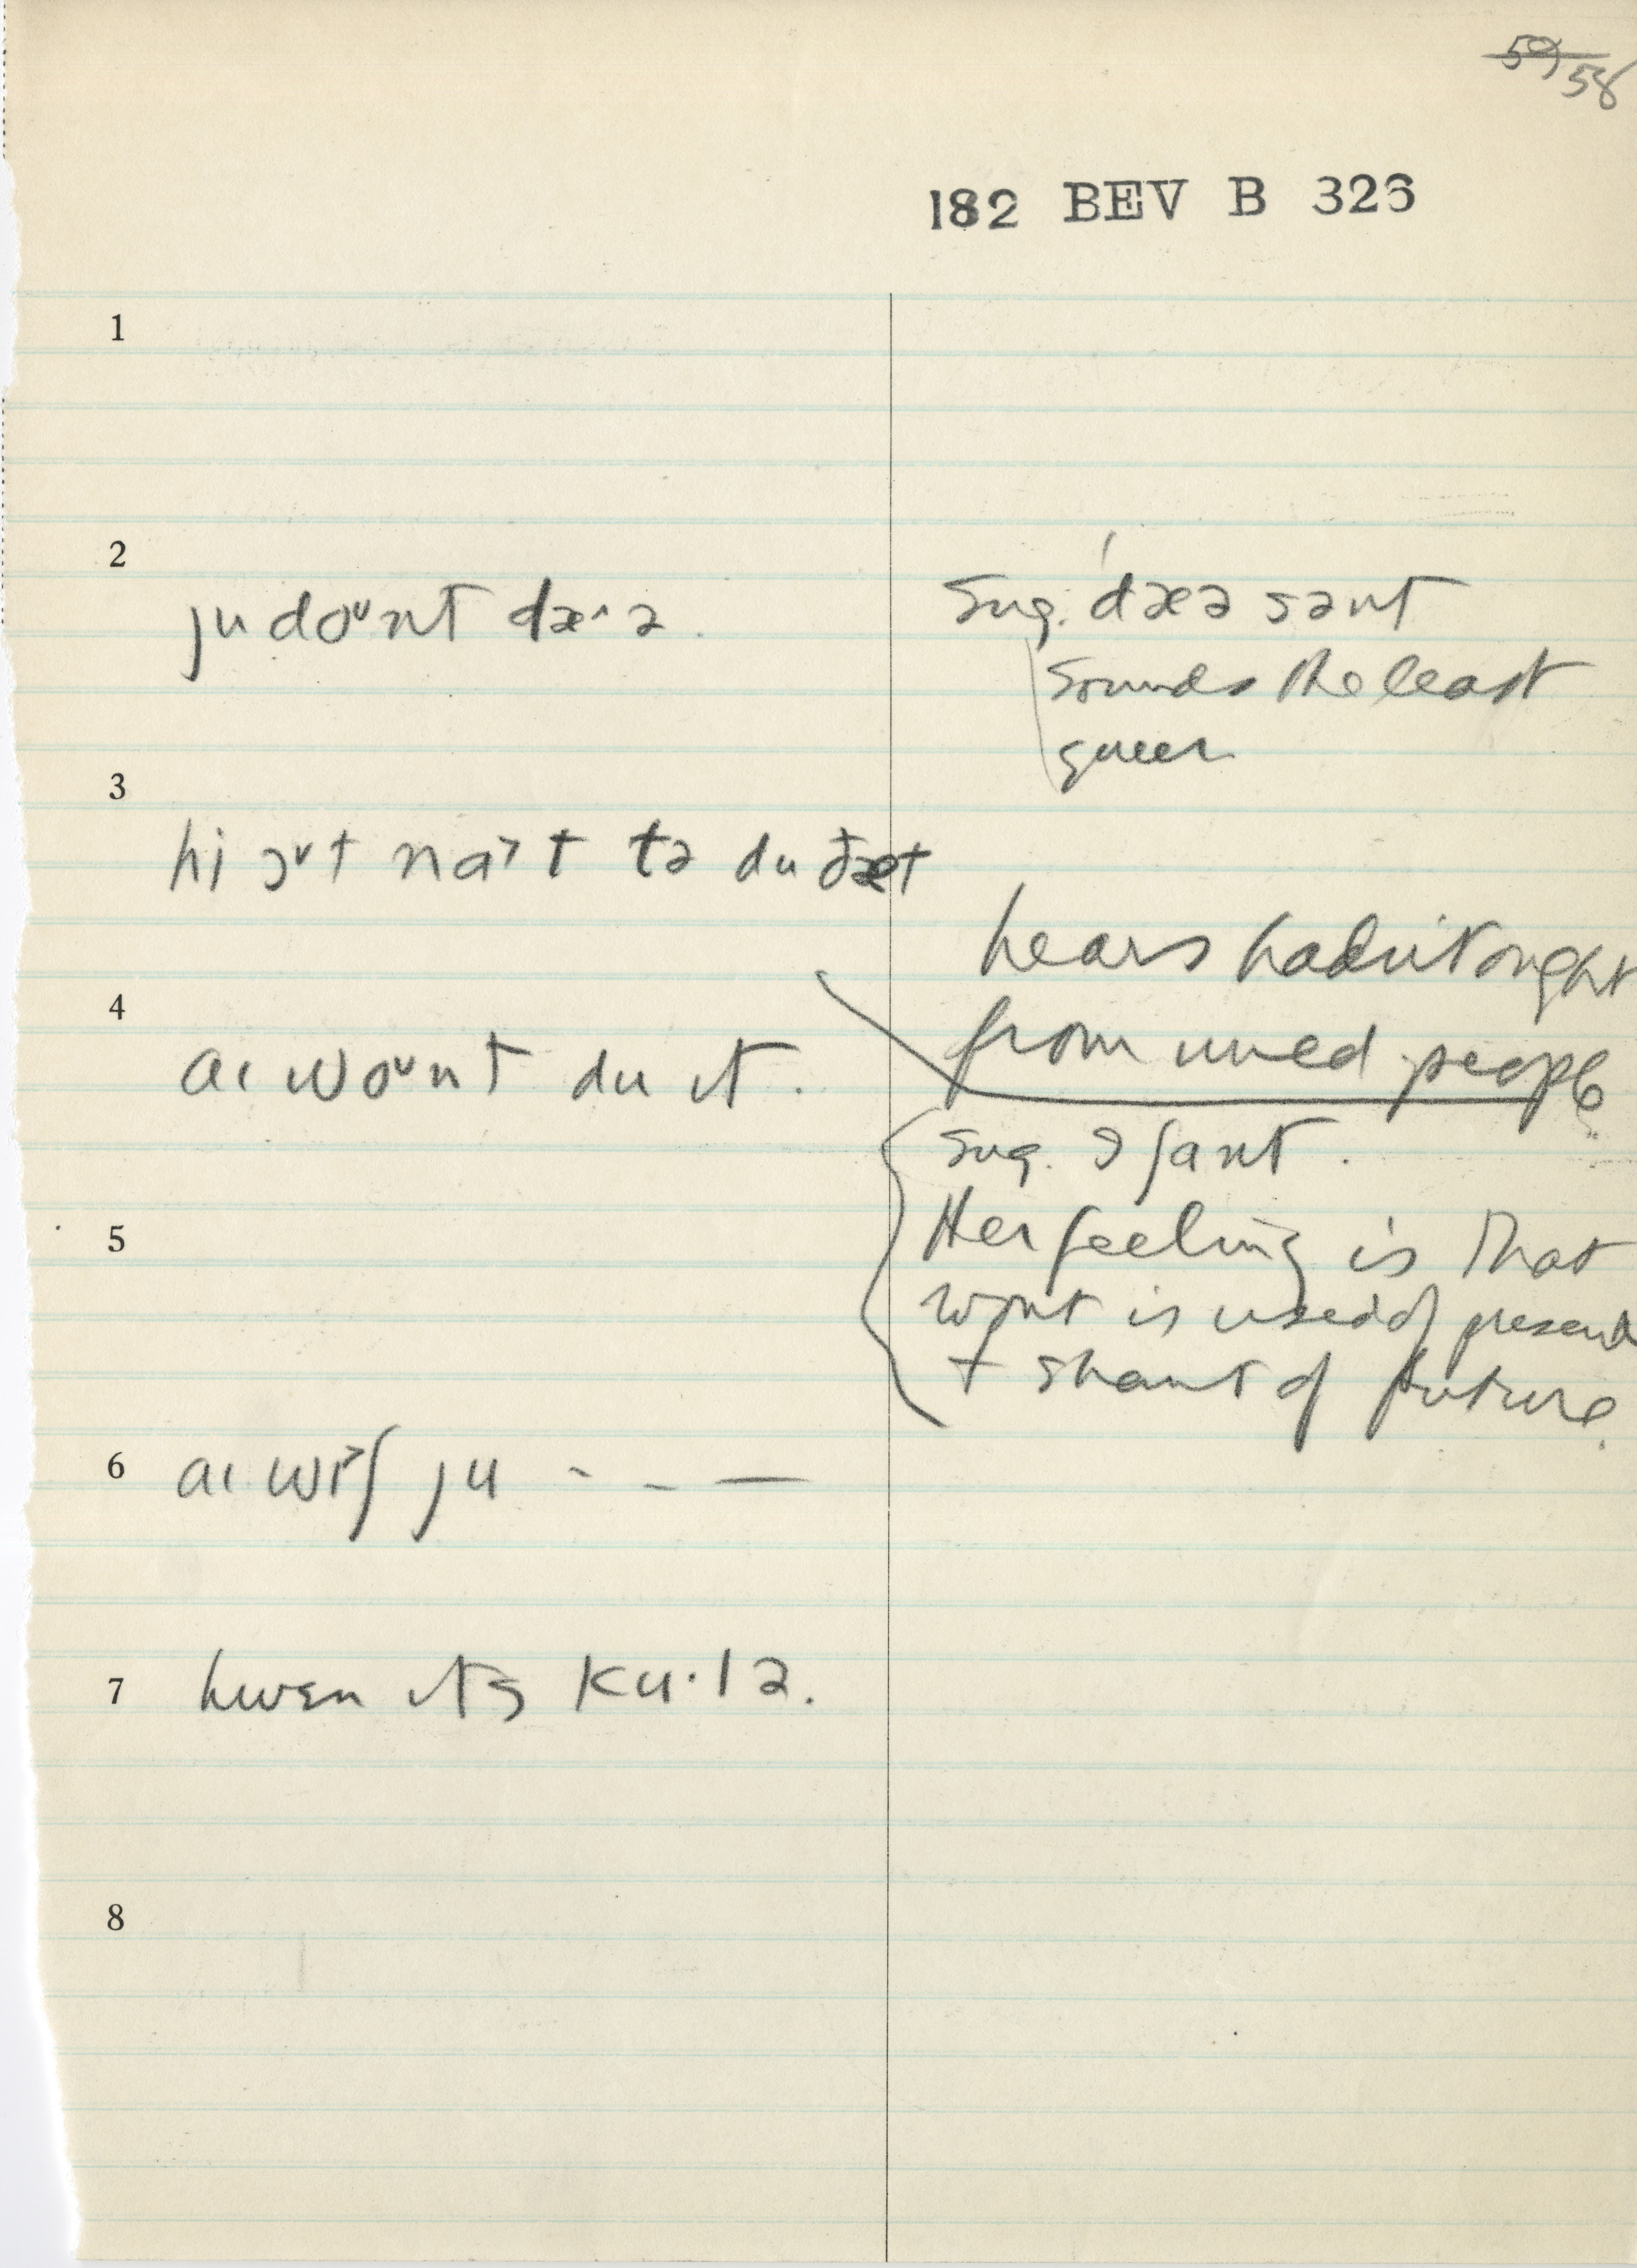 59 58
182 BEV B 326
1
2
ju doᵘnt dæ^ə.
Sug. dæə sənt
sounds the least
queer
3
hi ɔᵛt nɑ˃t tə du ðæt
hears hadn't ought
from uned people
4
aɪ woᵘnt du ɪt.
Sug. ə ʃant.
Her feeling is that
5
wont is used of present
+ shant of future.
6
aɪ wɪ˃ʃ ju - - —
7
hwɛn ɪts ku·lə.
8